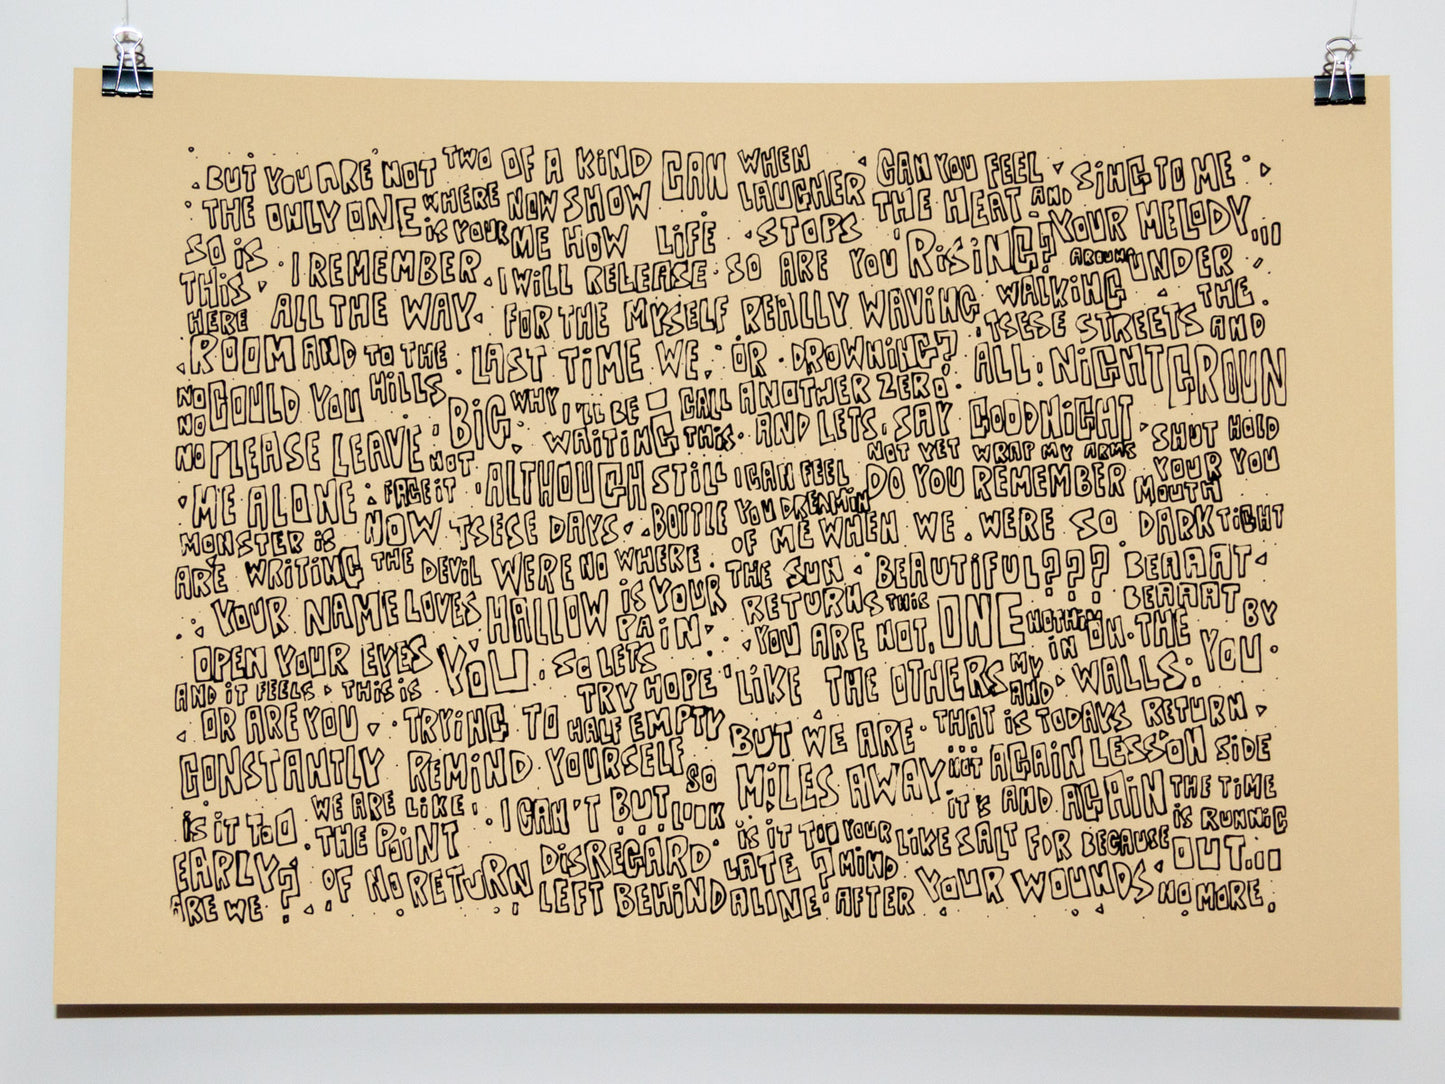 BUT YOU ARE NOT TWO OF A KIND CAN WHEN CAN YOU FEEL SING TO ME
THE ONLY ONE WHERE NOW SHOW LAUGHER THE HEAT AND
SO IS IS YOUR ME HOW LIFE STOPS YOUR MELODY...
THIS I REMEMBER I WILL RELEASE SO ARE YOU RISING? AROUND UNDER
HERE ALL THE WAY FOR THE MYSELF REALLY WAVING WALKING THE
ROOM AND TO THE LAST TIME WE OR DROWNING? TSESE STREETS AND
NO COULD YOU HILLS BIG WHY I'LL BE CALL ANOTHER ZERO ALL NIGHT GROUN
NO
NO PLEASE LEAVE NOT WAITING THIS. AND LETS SAY GOODNIGHT SHUT HOLD
ME ALONE FACE IT ALTHOUGH STILL I CAN FEEL NOT YET WRAP MY ARMS YOUR YOU
MONSTER IS NOW TSESE DAYS BOTTLE YOU DREAMIN DO YOU REMEMBER MOUTH
ARE WRITING THE DEVIL WERE NO WHERE OF ME WHEN WE WERE SO DARK TIGHT
YOUR NAME LOVES HALLOW IS YOUR THE SUN BEAUTIFUL??? BEAAAT
OPEN YOUR EYES YOU PAIN RETURNS THIS ONE NOTHIN BEAAAT BY
AND IT FEELS THIS IS SO LETS YOU ARE NOT, IN ON THE YOU
OR ARE YOU TRYING TO TRY HOPE LIKE THE OTHERS MY AND WALLS.
CONSTANTLY REMIND YOURSELF HALF EMPTY BUT WE ARE THAT IS TODAYS RETURN
IS IT TOO WE ARE LIKE I CAN'T BUT SO LOOK MILES AWAY NOT AGAIN LESSON SIDE
EARLY? THE POINT DISREGARD IS IT TOO YOUR IT'S AND AGAIN THE TIME
ARE WE OF NO RETURN LEFT BEHIND LATE? MIND LIKE SALT FOR BECAUSE IS RUNNIG
ALINE AFTER YOUR WOUNDS OUT...
NO MORE.